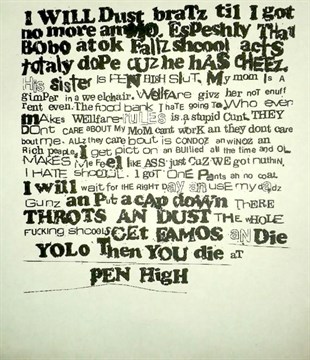 I WILL Dust braTz til I got
no more ammo. EsPeshly That
BObo at ok Fallz shcool acts
totaly dope cuz he hAS CHEEZ.
His sister is PEN HIGH SLUT. My mom Is A
gimPer in a we elchair. Wellfare givz her not enuff
Tent even. The food bank I hate going To. Who even
makes Wellfare RULES is a stupid Cunt. THEY
DOnt CARE ABOUT My MoM cant work an they dont care
bout me. All they care bout is CONDOZ an WINOZ an
Rich people. I get picT on an Bullied all the time and OL
MAKES Me Feel like ASS just CuZ WE got nuthin,
I HATE shcoool. I got One Pants an no coat
I will wait for the RIGHT DAy an use my dadz
Gunz an Put a cap down THERE
THROTS AN DUST THE WHOLE
Fucking shcools GEt FAMOS an Die
YOLO Then YOU die aT
PEN HiGH